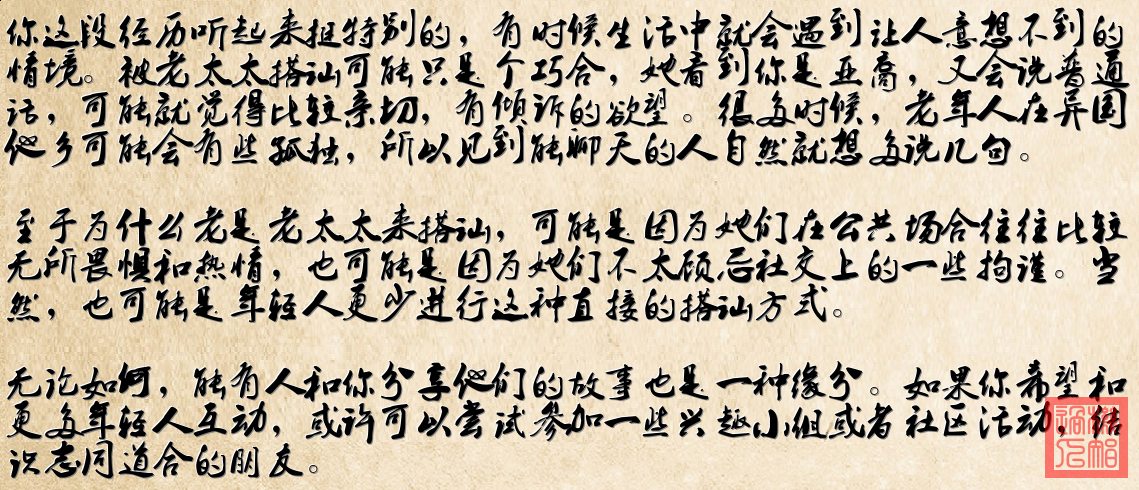 你这段经历听起来挺特别的，有时候生活中就会遇到让人意想不到的
情境。被老太太搭讪可能只是个巧合，她看到你是亚裔，又会说普通
话，可能就觉得比较亲切，有倾诉的欲望。很多时候，老年人在异国
他乡可能会有些孤独，所以见到能聊天的人自然就想多说几句。
至于为什么老是老太太来搭讪，可能是因为她们在公共场合往往比较
无所畏惧和热情，也可能是因为她们不太顾忌社交上的一些拘谨。当
然，也可能是年轻人更少进行这种直接的搭讪方式。
无论如何，能有人和你分享他们的故事也是一种缘分。如果你希望和
更多年轻人互动，或许可以尝试参加一些兴趣小组或者社区活动，结
识志同道合的朋友。